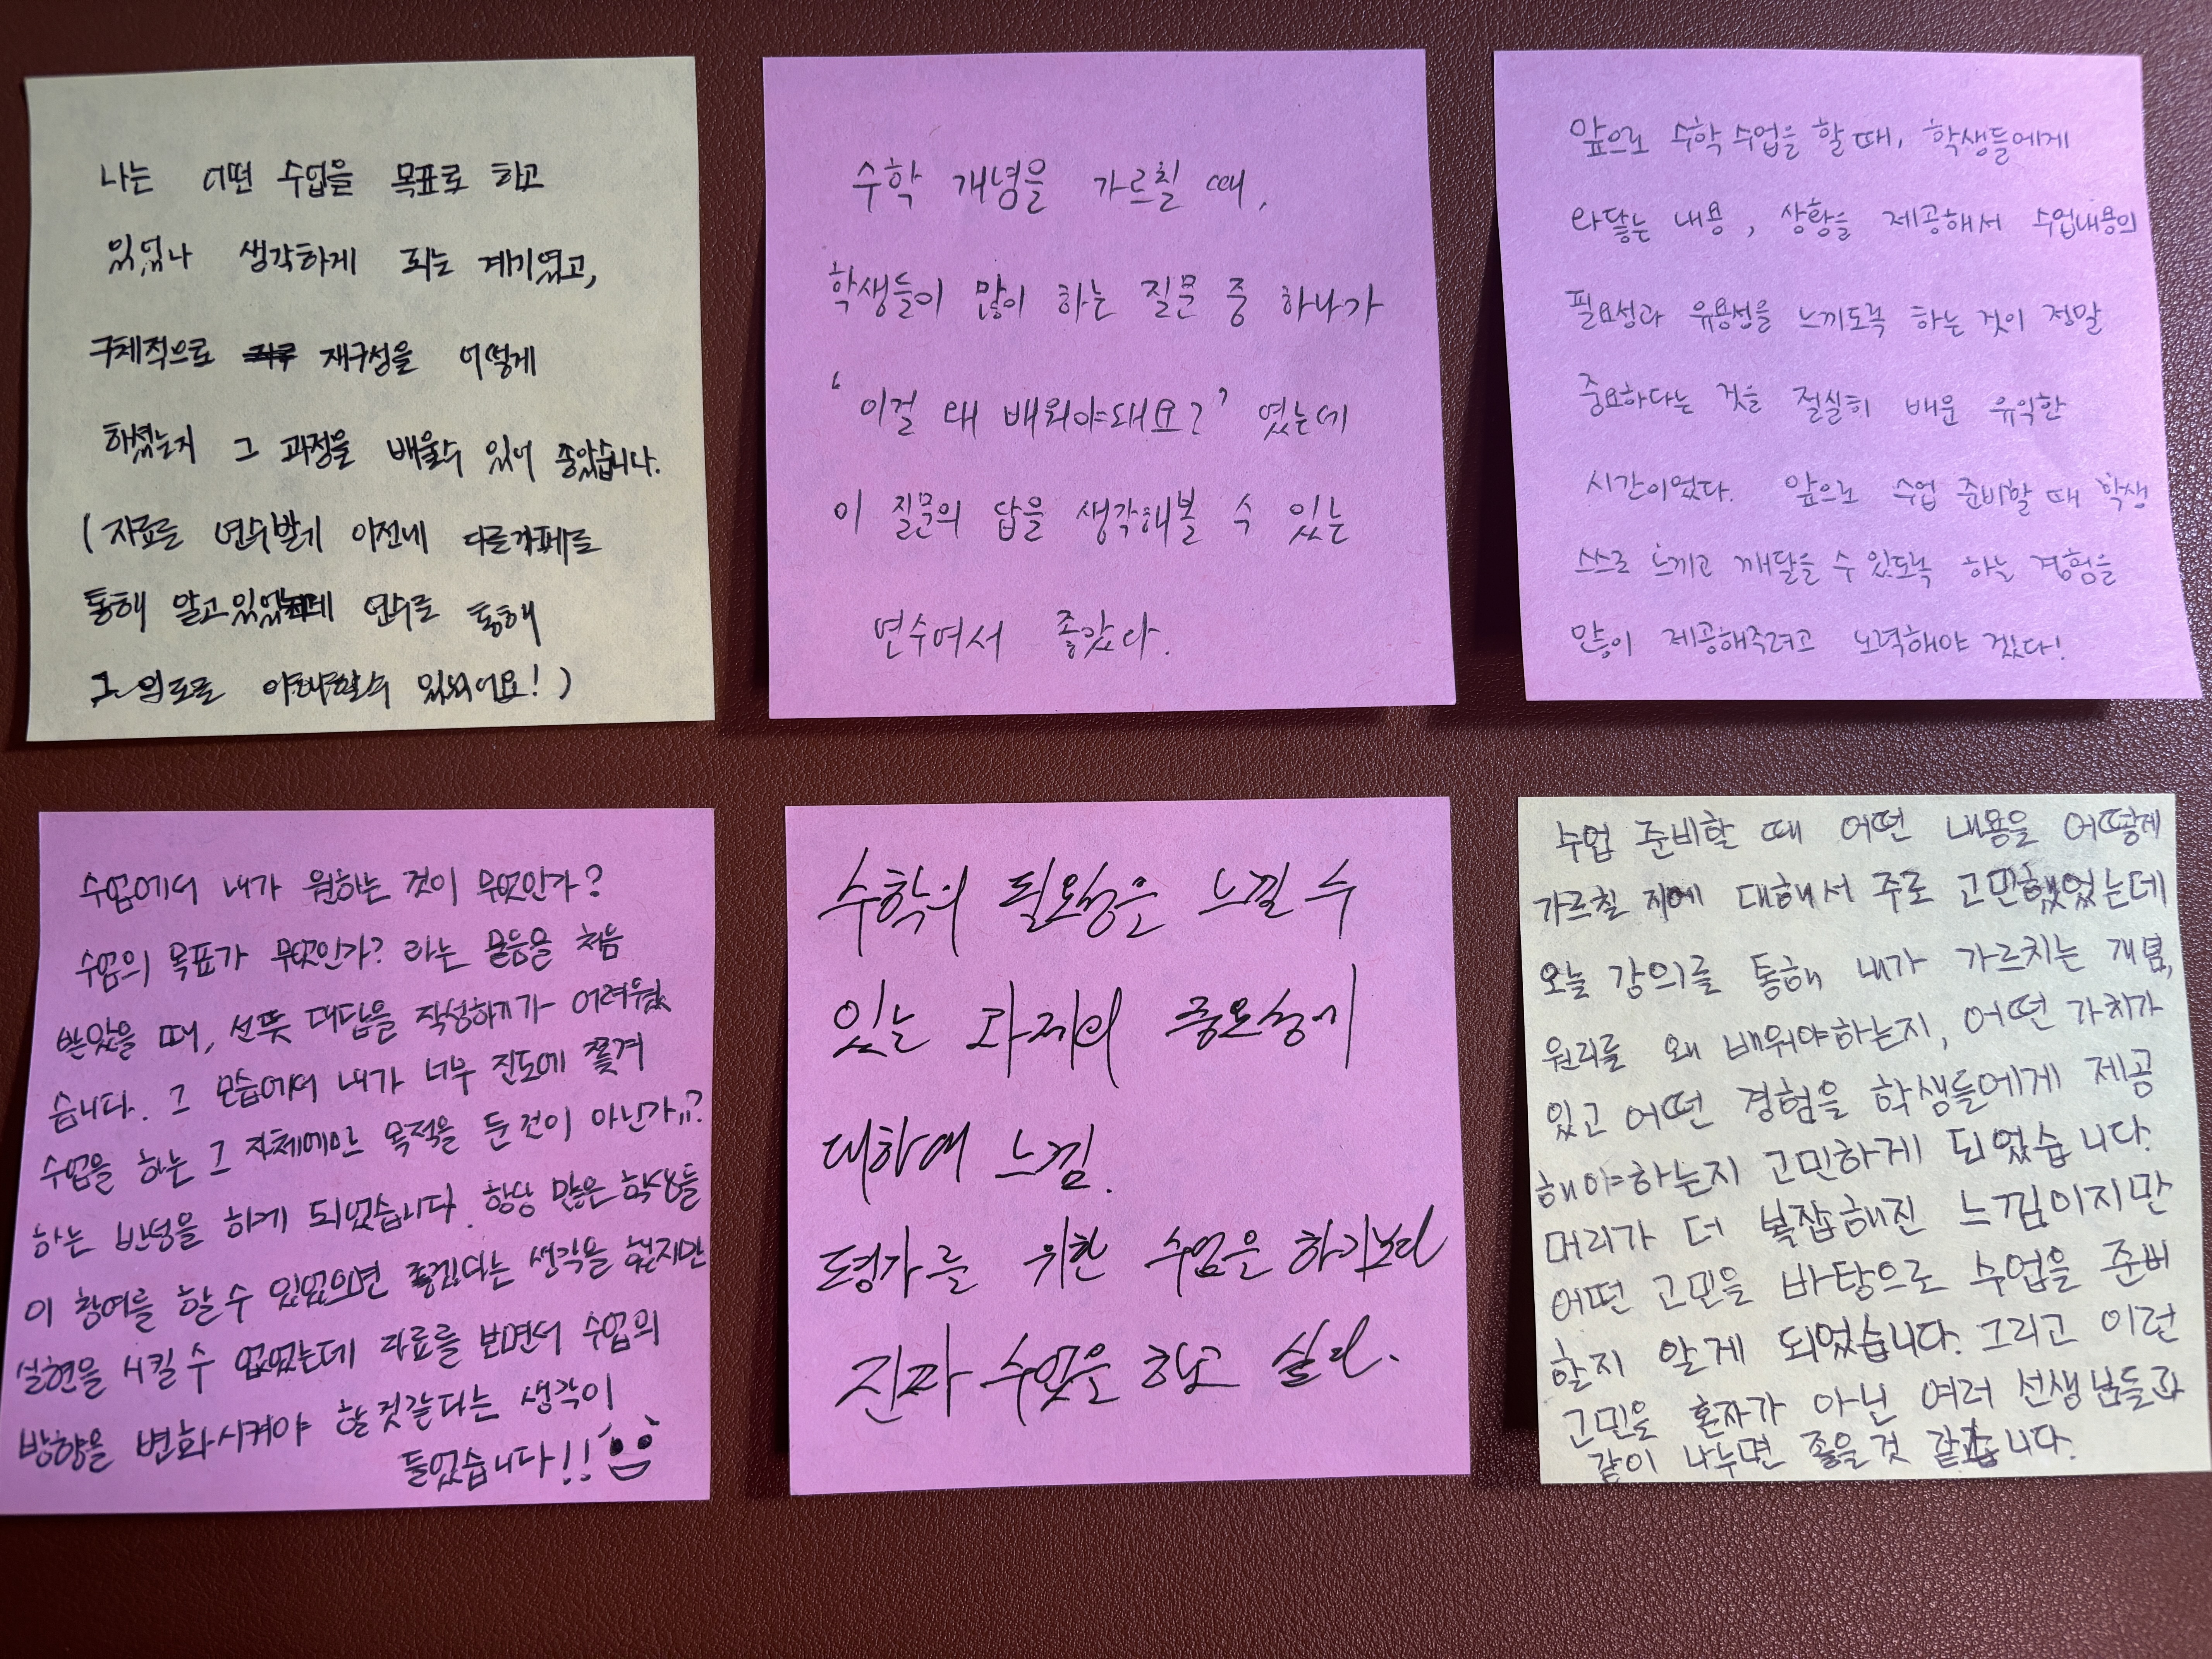 나는 어떤 수업을 목표로 하고
있었나 생각하게 되는 계기였고,
구체적으로 재구성을 어떻게
하셨는지 그 과정을 배울수 있어 좋았습니다.
(자료를 연수받기 이전에 다른카페를
통해 알고있었는데 연수를 통해
그 의도를 이해할수 있되어요!)
수학 개념을 가르칠 때,
학생들이 많이 하는 질문 중 하나가
'이걸 왜 배워야돼요?' 였는데
이 질문의 답을 생각해볼 수 있는
연수여서 좋았다.
앞으로 수학 수업을 할 때, 학생들에게
와닿는 내용, 상황을 제공해서 수업내용의
필요성과 유용성을 느끼도록 하는 것이 정말
중요하다는 것을 절실히 배운 유익한
시간이었다. 앞으로 수업 준비할 때 학생
스스로 느끼고 깨달을 수 있도록 하는 경험을
많이 제공해주려고 노력해야 겠다!
수업에서 내가 원하는 것이 무엇인가?
수업의 목표가 무엇인가? 라는 물음을 처음
받았을 때, 선뜻 대답을 작성하기가 어려웠
습니다. 그 모습에서 내가 너무 진도에 쫓겨
수업을 하는 그 자체에만 목적을 둔 것이 아닌가..?
하는 반성을 하게 되었습니다. 항상 많은 학생들
이 참여를 할 수 있었으면 좋겠다는 생각을 했지만
실현을 시킬 수 없었는데 자료를 보면서 수업의
방향을 변화시켜야 할것같다는 생각이
들었습니다!!
수학의 필요성을 느낄 수
있는 과제의 중요성에
대하여 느낌.
평가를 위한 수업을 하기보단
진짜 수업을 하고 싶다.
수업 준비할 때 어떤 내용을 어떻게
가르칠 지에 대해서 주로 고민했었는데
오늘 강의를 통해 내가 가르치는 개념,
원리를 왜 배워야하는지, 어떤 가치가
있고 어떤 경험을 학생들에게 제공
해야하는지 고민하게 되었습니다.
머리가 더 복잡해진 느낌이지만
어떤 고민을 바탕으로 수업을 준비
할지 알게 되었습니다. 그리고 이런
고민을 혼자가 아닌 여러 선생님들과
같이 나누면 좋을 것 같습니다.